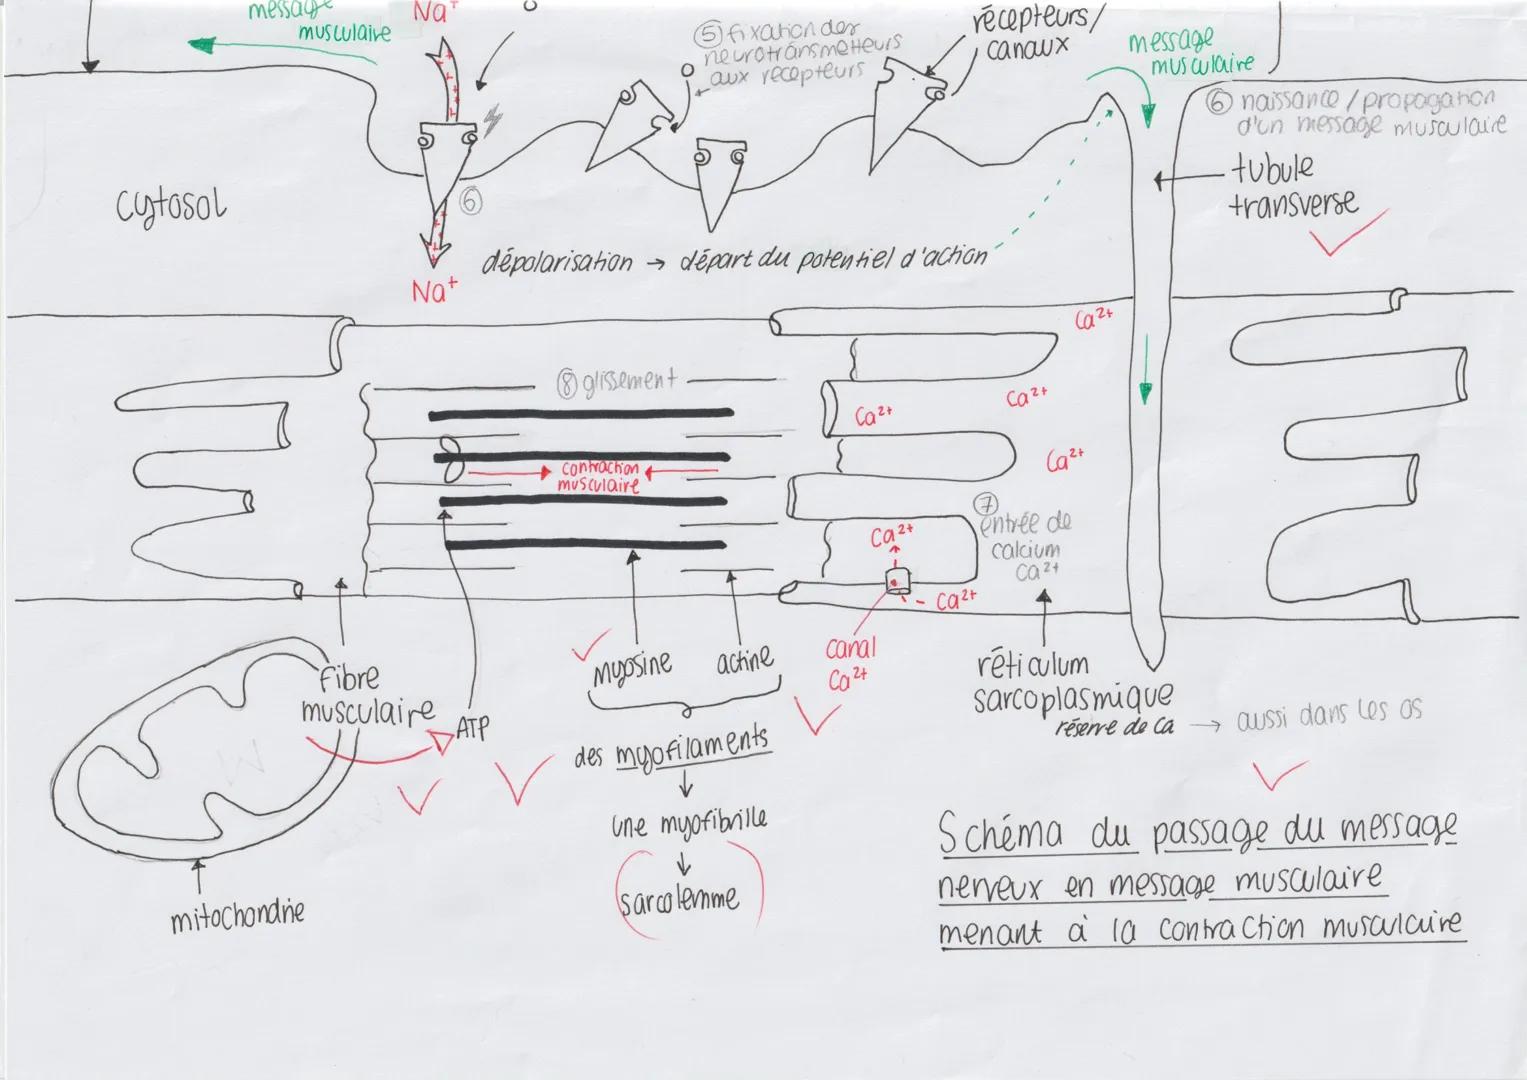 message
musculaire
Na⁺
⑤ fixation des
neurotransmetteurs
aux récepteurs
récepteurs/
canaux
message
musculaire
⑥ naissance / propagation
d'un message musculaire
tubule
transverse
cytosol
⑥
Na⁺
dépolarisation → départ du potentiel d'action
Ca²⁺
⑧ glissement
Ca²⁺
Ca²⁺
Ca²⁺
contraction
musculaire
⑦
entrée de
calcium
Ca²⁺
Ca²⁺
Ca²⁺
canal
Ca²⁺
myosine
actine
fibre
musculaire
ATP
réticulum
sarcoplasmique
réserve de Ca → aussi dans les os
des myofilaments
↓
une myofibrille
↓
sarcolemme
mitochondrie
Schéma du passage du message
nerveux en message musculaire
menant à la contraction musculaire